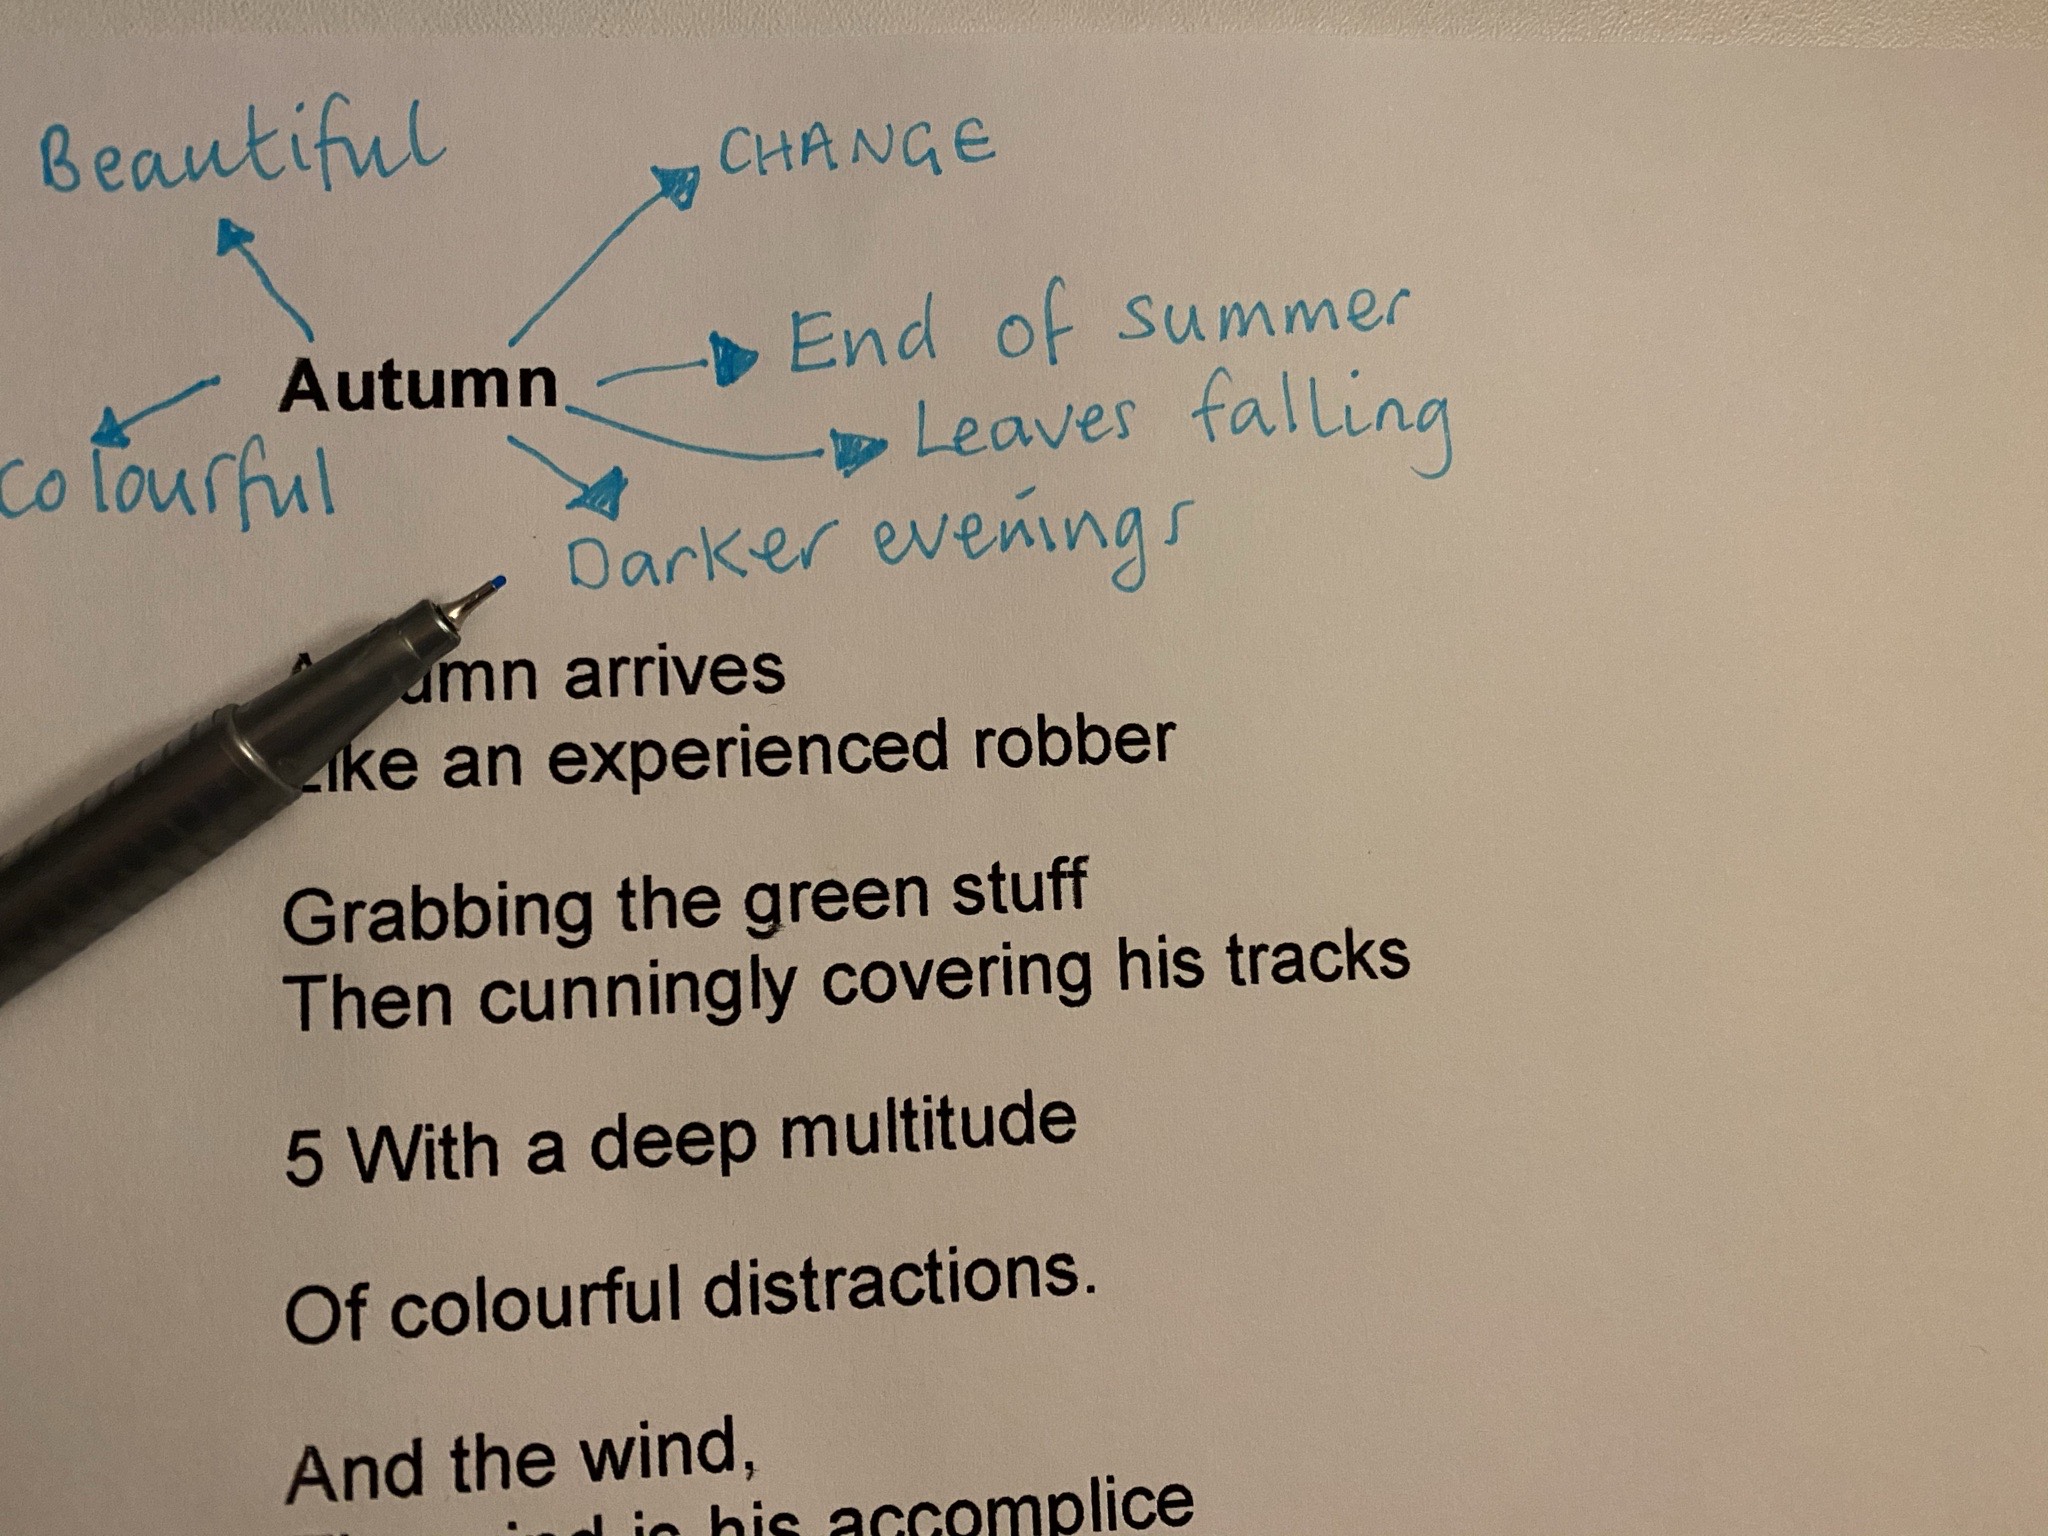 Beautiful
CHANGE
End of summer
Autumn
Leaves falling
Colourful
Darker evenings
Autumn arrives
Like an experienced robber
Grabbing the green stuff
Then cunningly covering his tracks
5 With a deep multitude
Of colourful distractions.
And the wind,
The wind is his accomplice